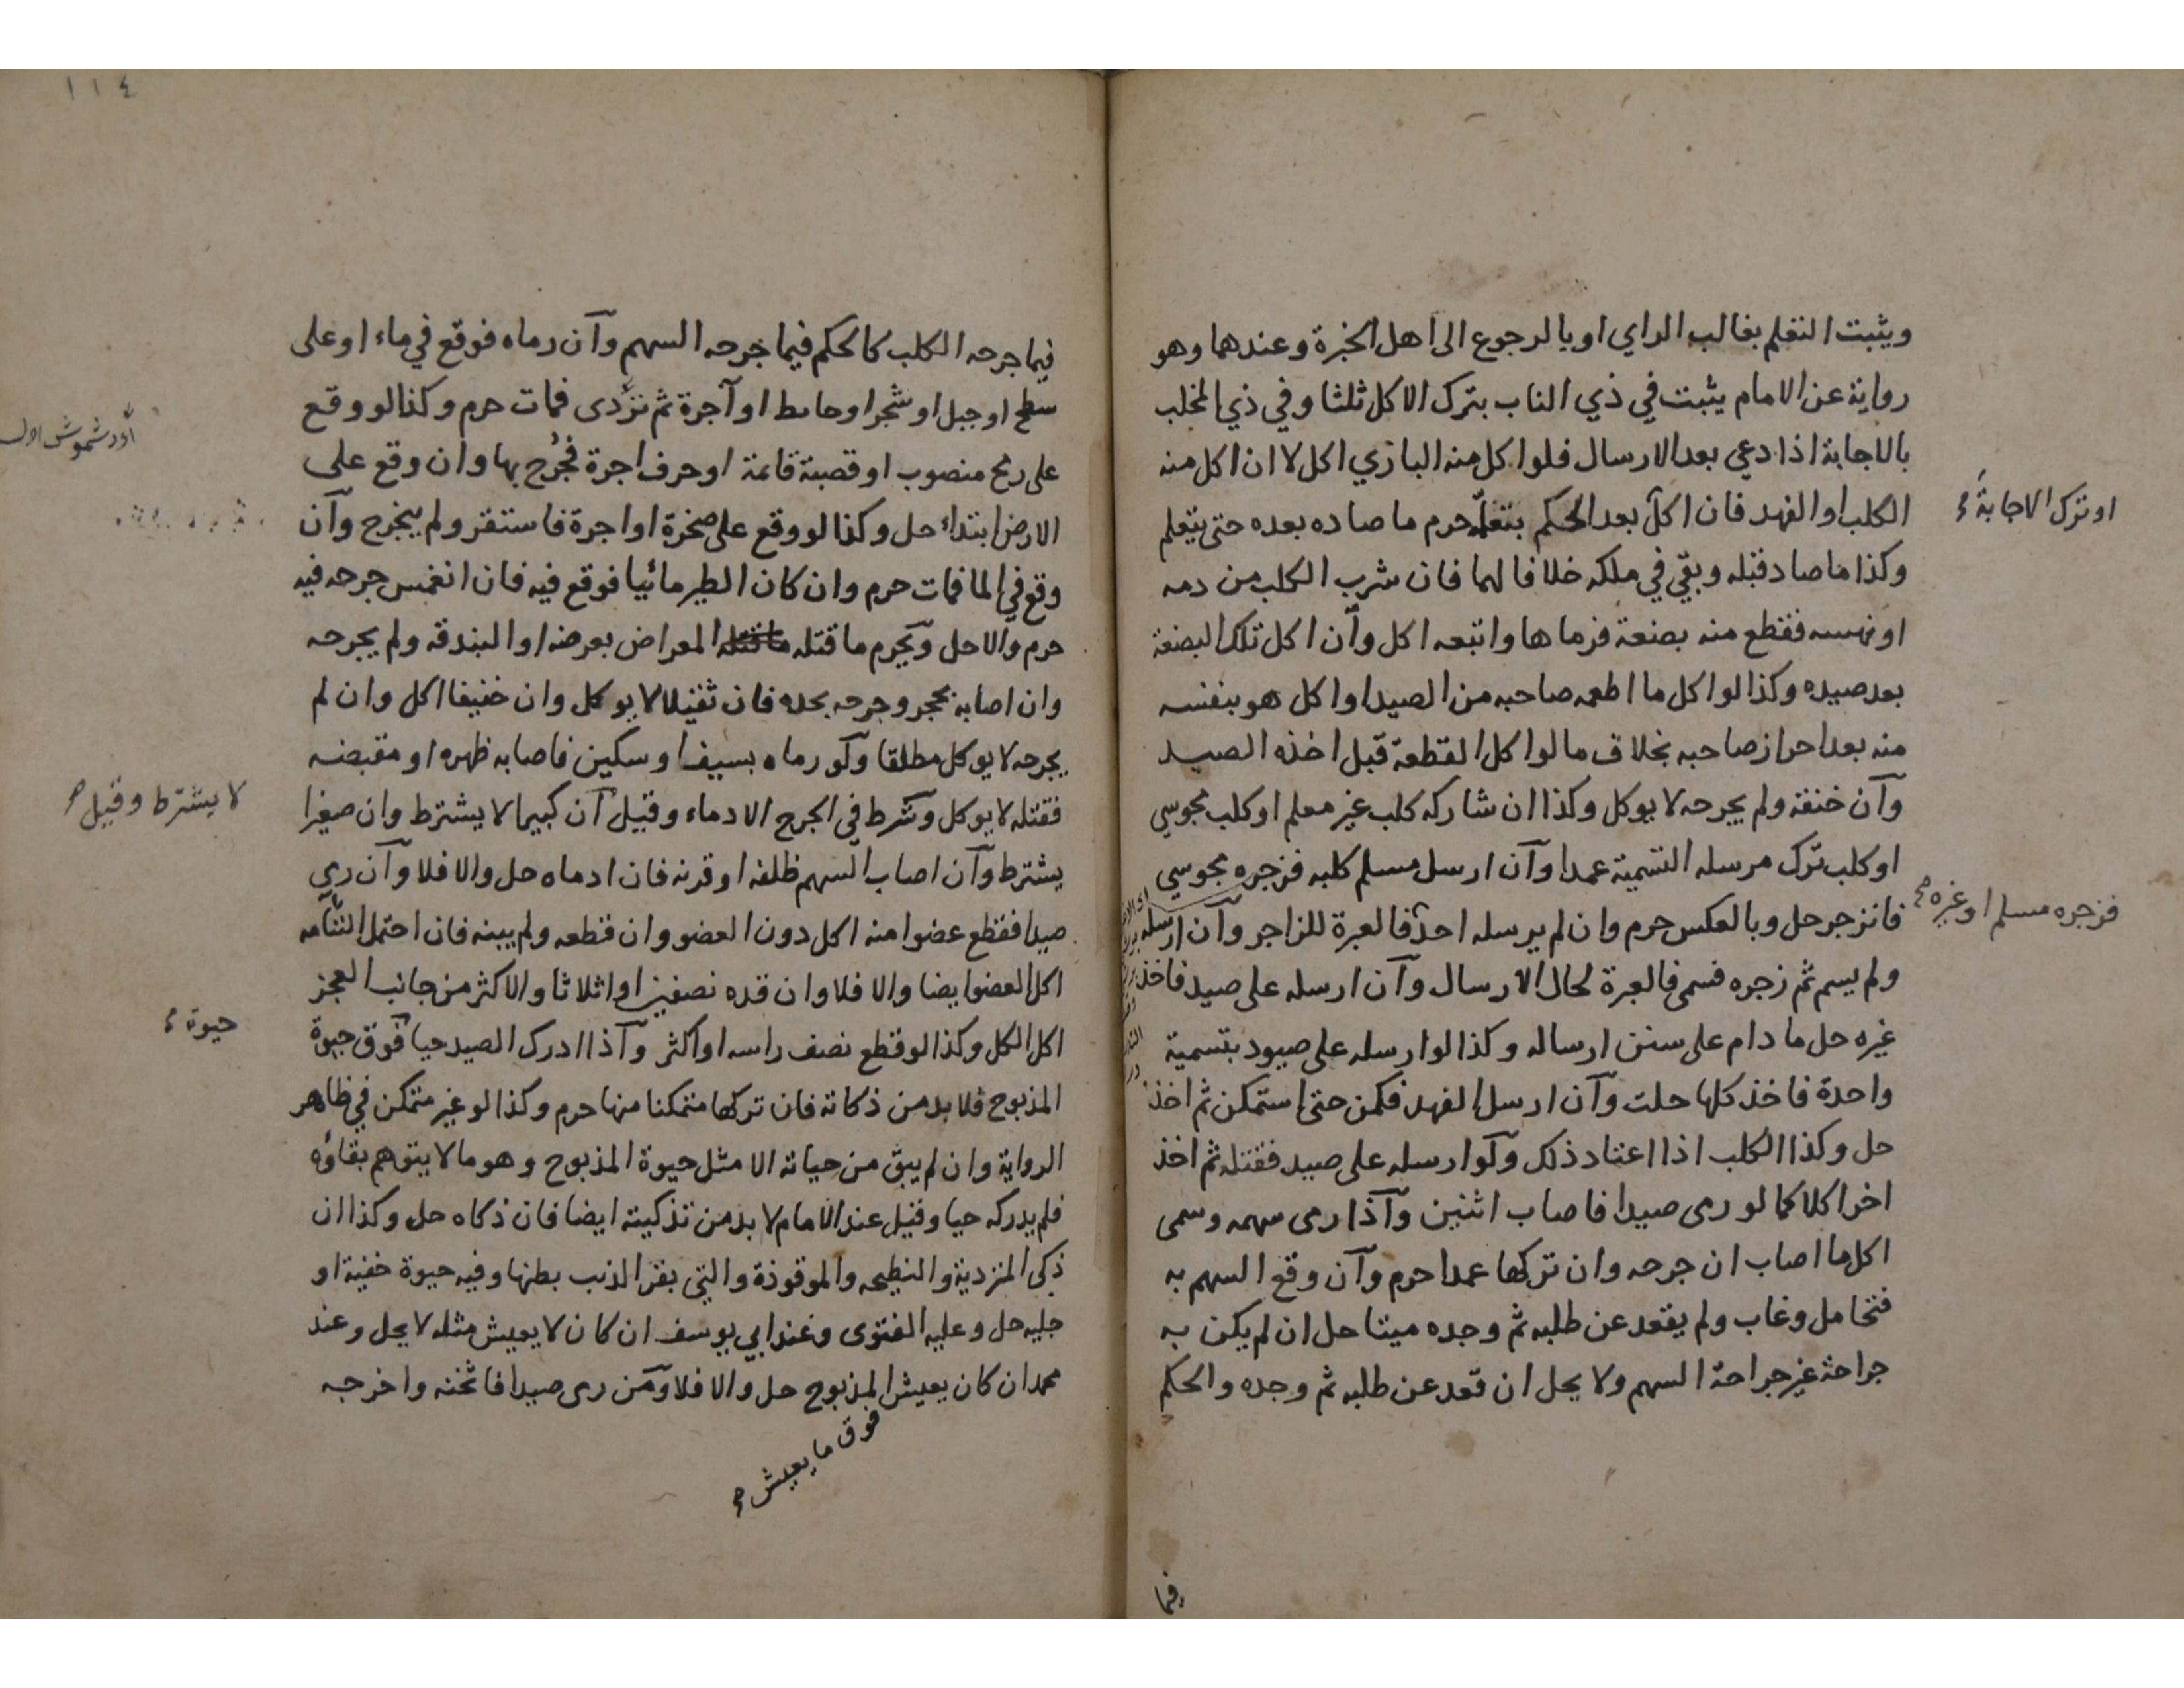 ويثبت التعلم بغالب الراي او بالرجوع الى اهل الخبرة وعندهما وهو
رواية عن الامام يثبت في ذي الناب بترك الاكل ثلثا وفي ذي المخلب
بالاجابة اذا دعي بعد الارسال فلو اكل منه البازي اكل لا ان اكل منه
الكلب او الفهد فان اكل بعد الحكم بتعلمه حرم ما صاده بعده حتى يتعلم
او ترك الاجابة
وكذا ما صاد قبله وبقي في ملكه خلافا لهما فان شرب الكلب من دمه
او نهسه فقطع منه بضعة فرماها واتبعه اكل وان اكل تلك البضعة
بعد صيده وكذا لو اكل ما اطعمه صاحبه من الصيد او اكل هو بنفسه
منه بعد احراز صاحبه بخلاف ما لو اكل القطعة قبل اخذه الصيد
وان خنقه ولم يجرحه لا يوكل وكذا ان شاركه كلب غير معلم او كلب مجوسي
او كلب ترك مرسله التسمية عمدا وان ارسل مسلم كلبه فزجره مجوسي
فانزجر حل وبالعكس حرم وان لم يرسله احد فالعبرة للزاجر وان ارسله
فزجره مسلم او غيره
ولم يسم ثم زجره فسمى فالعبرة لحال الارسال وان ارسله على صيد فاخذ
غيره حل ما دام على سنن ارساله وكذا لو ارسله على صيود بتسمية
واحدة فاخذ كلها حلت وان ارسل الفهد فكمن حتى استمكن ثم اخذ
حل وكذا الكلب اذا اعتاد ذلك ولو ارسله على صيد فقتله ثم اخذ
اخر اكلا كما لو رمى صيدا فاصاب اثنين واذا رمى سهمه وسمى
اكل ما اصاب ان جرحه وان تركها عمدا حرم وان وقع السهم به
فتحامل وغاب ولم يقعد عن طلبه ثم وجده ميتا حل ان لم يكن به
جراحة غير جراحة السهم ولا يحل ان قعد عن طلبه ثم وجده والحكم
فيما
١١٤
فيما جرحه الكلب كالحكم فيما جرحه السهم وان رماه فوقع في ماء او على
سطح او جبل او شجر او حائط او آجرة ثم تردى فمات حرم وكذا لو وقع
على رمح منصوب او قصبة قائمة او حرف اجرة فجرح بها وان وقع على
الارض ابتداء حل وكذا لو وقع على صخرة او اجرة فاستقر ولم ينجرح وان
وقع في الما فمات حرم وان كان الطير مائيا فوقع فيه فان انغمس جرحه فيه
حرم والا حل ويحرم ما قتله ما قتله المعراض بعرضه او البندقة ولم يجرحه
وان اصابه بحجر وجرحه بحده فان ثقيلا لا يوكل وان خفيفا اكل وان لم
يجرحه لا يوكل مطلقا ولو رماه بسيف او سكين فاصابه ظهره او مقبضه
فقتله لا يوكل وشرط في الجرح الادماء وقيل ان كبيرا لا يشترط وان صغيرا
لا يشترط وقيل
يشترط وان اصاب السهم ظلفه او قرنه فان ادماه حل والا فلا وان رمي
صيدا فقطع عضوا منه اكل دون العضو وان قطعه ولم يبنه فان احتمل التئامه
اكل العضو ايضا والا فلا وان قده نصفين او اثلاثا والاكثر من جانب العجز
اكل الكل وكذا لو قطع نصف راسه او اكثر واذا ادرك الصيد حيا فوق حيوة
حيوة
المذبوح فلا بد من ذكاته فان تركها متمكنا منها حرم وكذا لو غير متمكن في ظاهر
الرواية وان لم يبق من حياته الا مثل حيوة المذبوح وهو ما لا يتوهم بقاؤه
فلم يدركه حيا وقيل عند الامام لا بد من تذكيته ايضا فان ذكاه حل وكذا ان
ذكى المتردية والنطيحه والموقوذة والتي بقر الذيب بطنها وفيه حيوة خفية او
جليه حل وعليه الفتوى وعند ابي يوسف ان كان لا يعيش مثله لا يحل وعند
محمد ان كان يعيش المذبوح حل والا فلا ومن رمى صيدا فاثخنه واخرجه
فوق ما يعيش